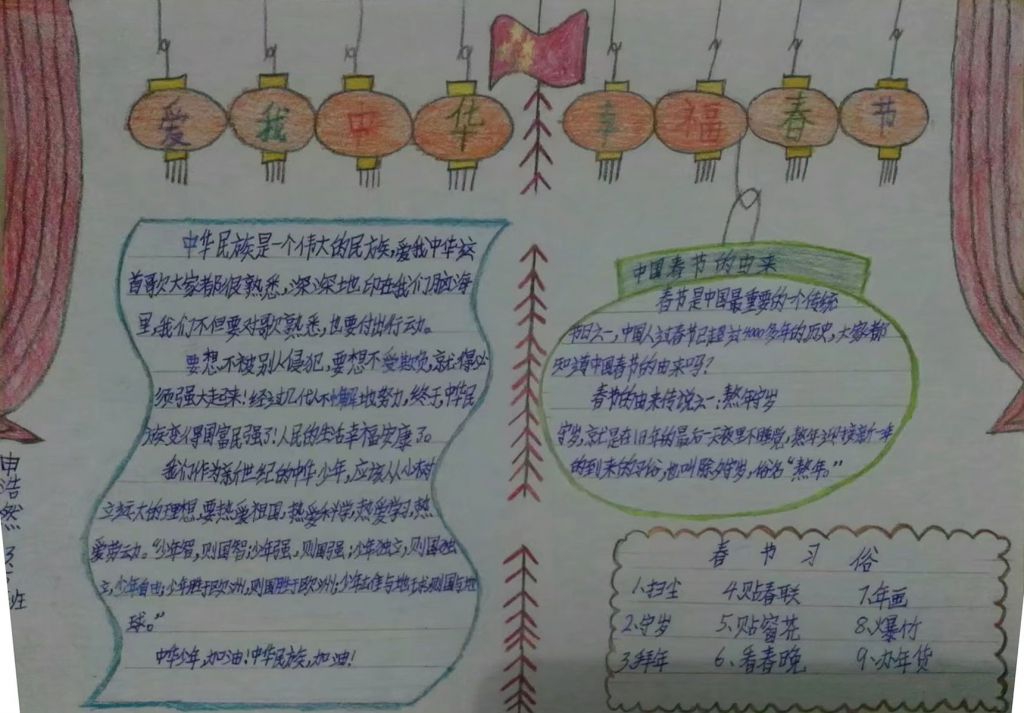 爱我中华
幸福春节
中华民族是一个伟大的民族,爱我中华这
首歌大家都很熟悉,深深地印在我们脑海
里,我们不但要对歌熟悉,也要付出行动。
要想不被别人侵犯,要想不受欺负,就得必
须强大起来!经过几代人不懈地努力,终于中华民
族变得国富民强了!人民的生活幸福安康了。
我们作为新世纪的中华少年,应该从小树
立远大的理想,要热爱祖国,热爱科学,热爱学习,热
爱劳动。“少年智,则国智;少年强,则国强;少年独立,则国独
立;少年自由;少年胜于欧洲,则国胜于欧洲;少年雄与地球则国与地
球。”
中华少年,加油!中华民族,加油!
中国春节的由来
春节是中国最重要的一个传统
节日之一,中国人过春节已超过4000多年的历史,大家都
知道中国春节的由来吗?
春节的由来传说之一:熬年守岁
守岁,就是在旧年的最后一天夜里不睡觉,熬年迎接新一年
的到来的习俗,也叫除夕守岁,俗名“熬年。”
春节习俗
1、扫尘 4.贴春联 7.年画
2、守岁 5.贴窗花 8.爆竹
3.拜年 6、看春晚 9.办年货
申浩然
班